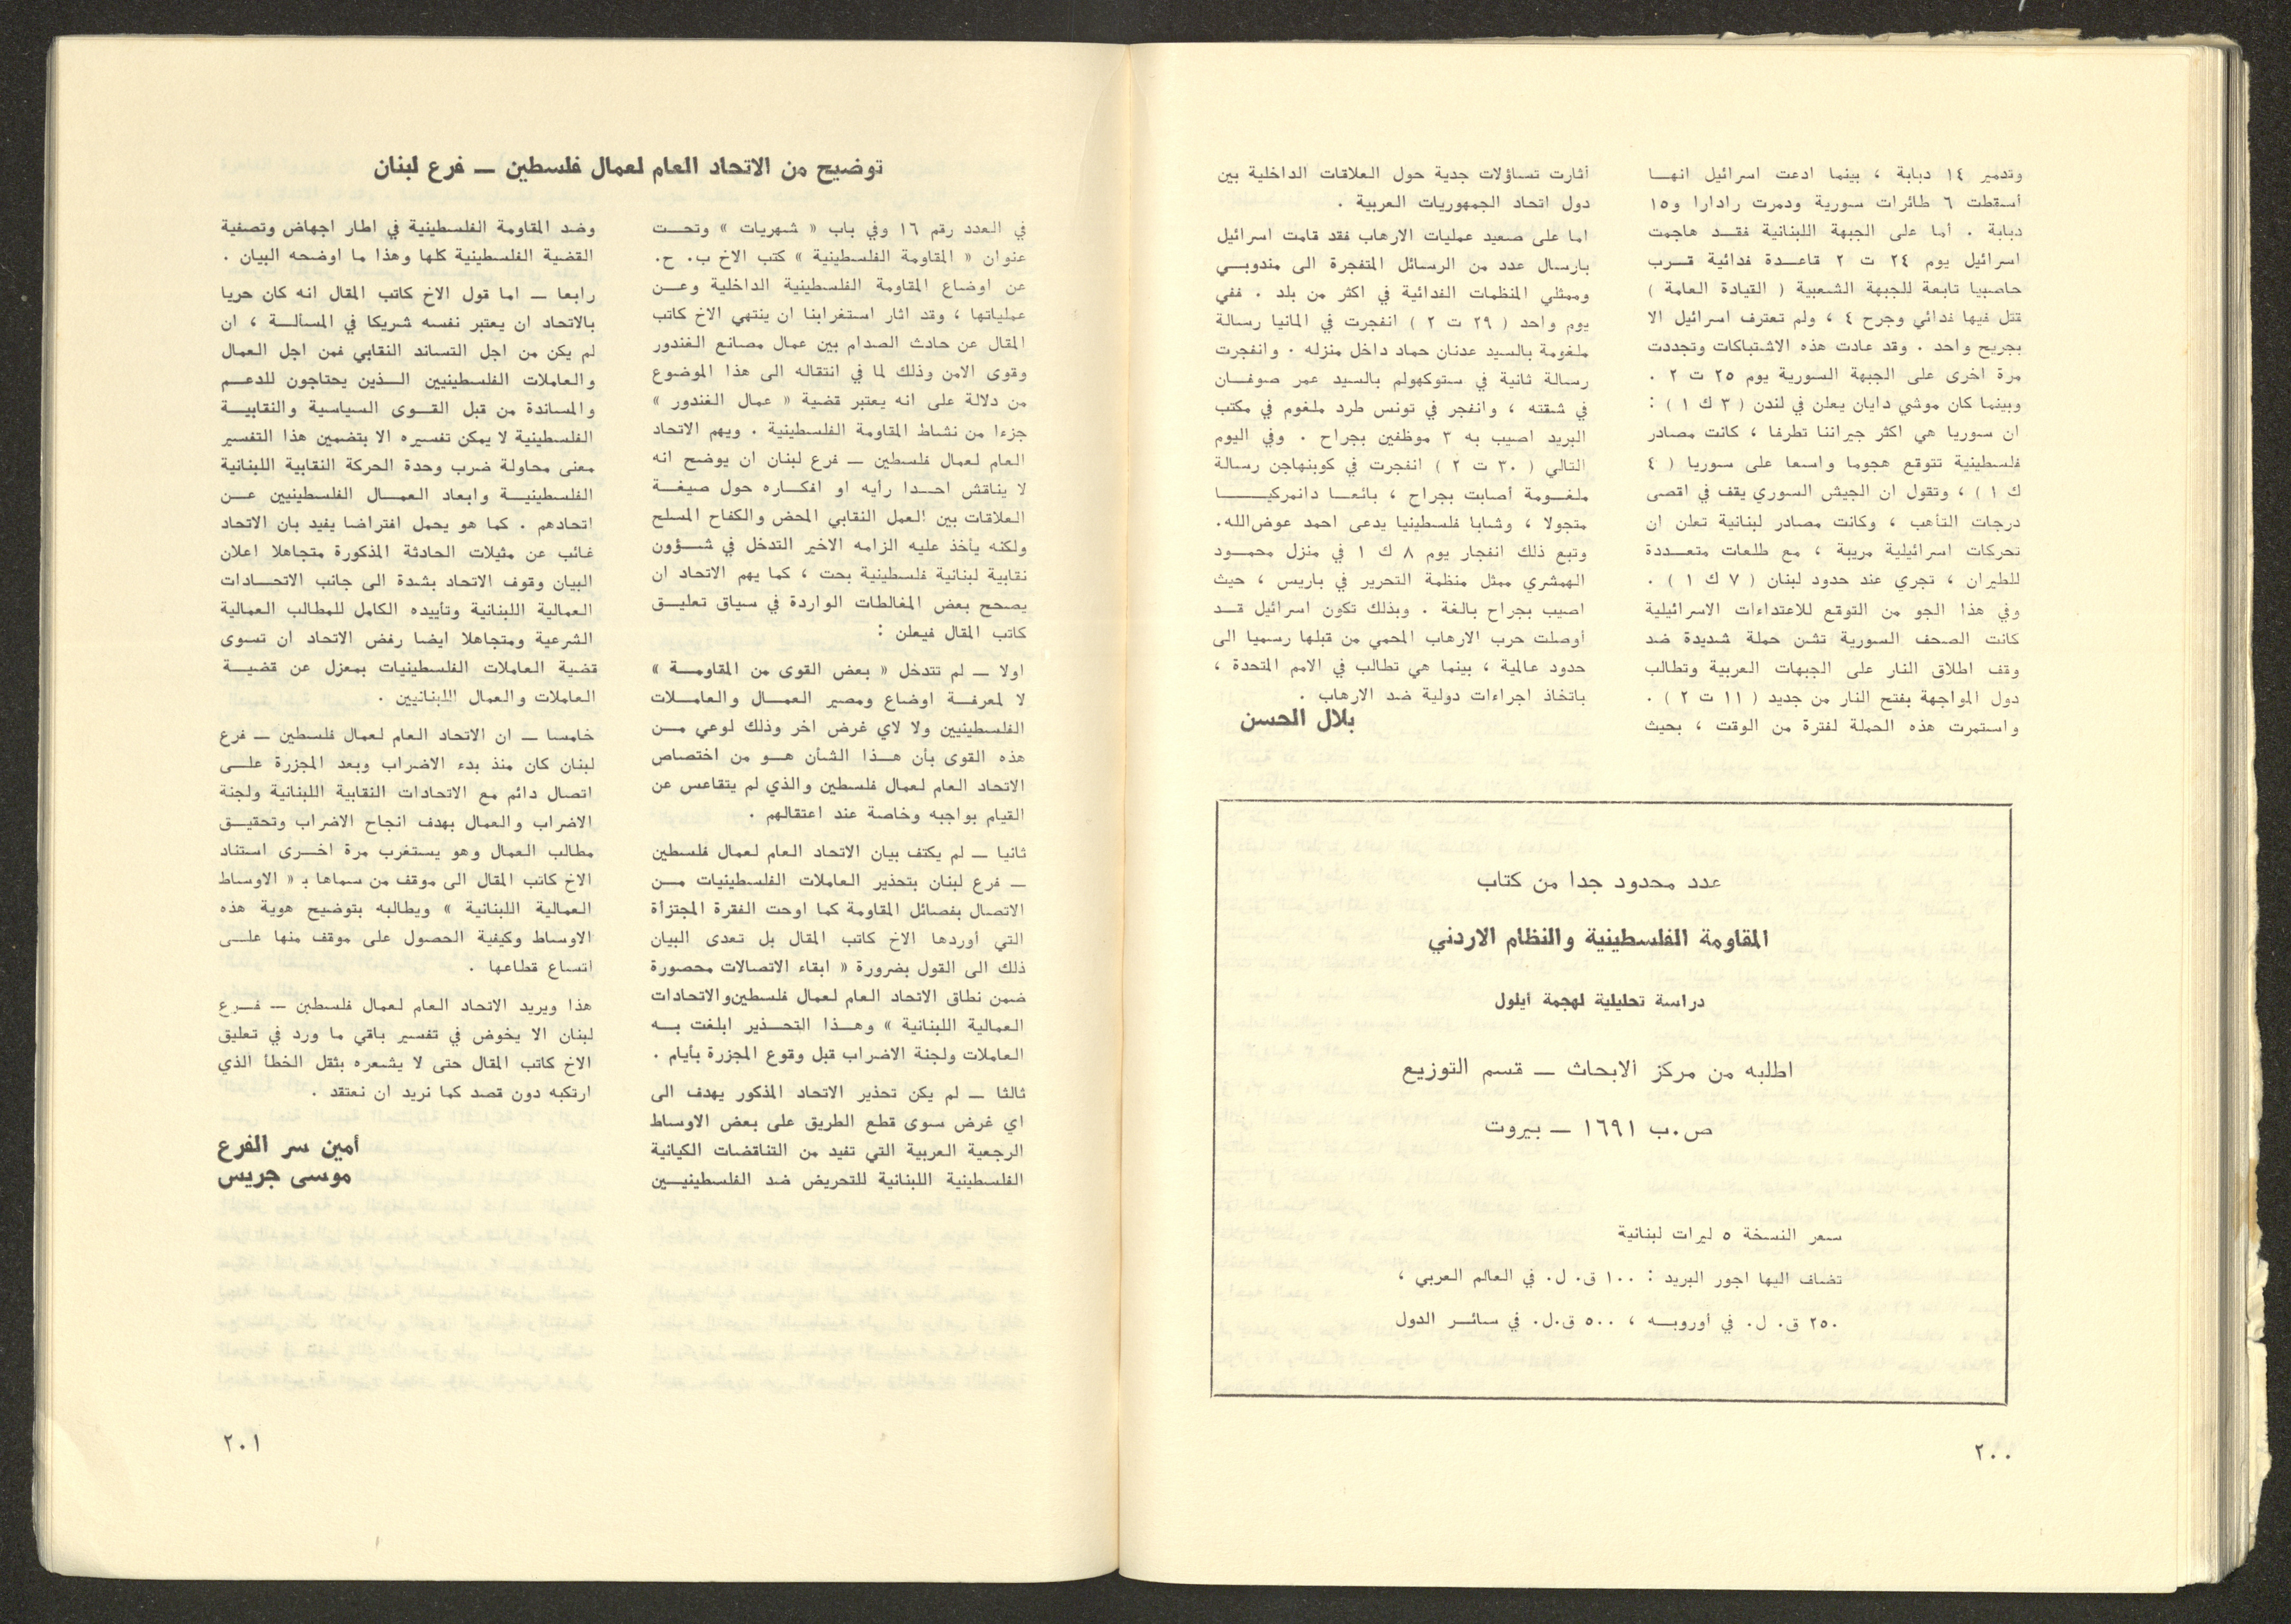 وتدمير ١٤ دبابة ، بينما ادعت اسرائيل انهـــا
أسقطت ٦ طائرات سورية ودمرت رادارا و١٥
دبابة . أما على الجبهة اللبنانية فقـــد هاجمت
اسرائيل يوم ٢٤ ت ٢ قاعــدة فدائية قــرب
حاصبيا تابعة للجبهة الشعبية ( القيادة العامة )
قتل فيها فدائي وجرح ٤ ، ولم تعترف اسرائيل الا
بجريح واحد . وقد عادت هذه الاشتباكات وتجددت
مرة اخرى على الجبهة السورية يوم ٢٥ ت ٢ .
وبينما كان موشي دايان يعلن في لندن ( ٣ ك ١ ) :
ان سوريا هي اكثر جيراننا تطرفا ، كانت مصادر
فلسطينية تتوقع هجوما واسعا على سوريا ( ٤
ك ١ ) ، وتقول ان الجيش السوري يقف في اقصى
درجات التأهب ، وكانت مصادر لبنانية تعلن ان
تحركات اسرائيلية مريبة ، مع طلعات متعــددة
للطيران ، تجري عند حدود لبنان ( ٧ ك ١ ) .
وفي هذا الجو من التوقع للاعتداءات الاسرائيلية
كانت الصحف السورية تشن حملة شديدة ضد
وقف اطلاق النار على الجبهات العربية وتطالب
دول المواجهة بفتح النار من جديد ( ١١ ت ٢ ) .
واستمرت هذه الحملة لفترة من الوقت ، بحيث
أثارت تساؤلات جدية حول العلاقات الداخلية بين
دول اتحاد الجمهوريات العربية .
اما على صعيد عمليات الارهاب فقد قامت اسرائيل
بارسال عدد من الرسائل المتفجرة الى مندوبــي
وممثلي المنظمات الفدائية في اكثر من بلد . ففي
يوم واحد ( ٢٩ ت ٢ ) انفجرت في المانيا رسالة
ملغومة بالسيد عدنان حماد داخل منزله . وانفجرت
رسالة ثانية في ستوكهولم بالسيد عمر صوفــان
في شقته ، وانفجر في تونس طرد ملغوم في مكتب
البريد اصيب به ٣ موظفين بجراح . وفي اليوم
التالي ( ٣٠ ت ٢ ) انفجرت في كوبنهاجن رسالة
ملغــومة أصابت بجراح ، بائعــا دانمركيــــا
متجولا ، وشابا فلسطينيا يدعى احمد عوض‌الله.
وتبع ذلك انفجار يوم ٨ ك ١ في منزل محمــود
الهمشري ممثل منظمة التحرير في باريس ، حيث
اصيب بجراح بالغة . وبذلك تكون اسرائيل قــد
أوصلت حرب الارهاب المحمي من قبلها رسميا الى
حدود عالمية ، بينما هي تطالب في الامم المتحدة ،
باتخاذ اجراءات دولية ضد الارهاب .
بلال الحسن
عدد محدود جدا من كتاب
المقاومة الفلسطينية والنظام الاردني
دراسة تحليلية لهجمة أيلول
اطلبه من مركز الابحاث — قسم التوزيع
ص.ب ١٦٩١ — بيروت
سعر النسخة ٥ ليرات لبنانية
تضاف اليها اجور البريد : ١٠٠ ق. ل. في العالم العربي ،
٢٥٠ ق. ل. في أوروبــه ، ٥٠٠ ق.ل. في سائــر الدول
٢٠٠
توضيح من الاتحاد العام لعمال فلسطين — فرع لبنان
في العدد رقم ١٦ وفي باب « شهريات » وتحــت
عنوان « المقاومة الفلسطينية » كتب الاخ ب. ح.
عن اوضاع المقاومة الفلسطينية الداخلية وعــن
عملياتها ، وقد اثار استغرابنا ان ينتهي الاخ كاتب
المقال عن حادث الصدام بين عمال مصانع الغندور
وقوى الامن وذلك لما في انتقاله الى هذا الموضوع
من دلالة على انه يعتبر قضية « عمال الغندور »
جزءا من نشاط المقاومة الفلسطينية . ويهم الاتحاد
العام لعمال فلسطين — فرع لبنان ان يوضح انه
لا يناقش احــدا رأيه او افكــاره حول صيغــة
العلاقات بين العمل النقابي المحض والكفاح المسلح
ولكنه يأخذ عليه الزامه الاخير التدخل في شــؤون
نقابية لبنانية فلسطينية بحت ، كما يهم الاتحاد ان
يصحح بعض المغالطات الواردة في سياق تعليــق
كاتب المقال فيعلن :
اولا — لم تتدخل « بعض القوى من المقاومــة »
لا لمعرفــة اوضاع ومصير العمــال والعامــلات
الفلسطينيين ولا لاي غرض اخر وذلك لوعي مــن
هذه القوى بأن هــذا الشأن هــو من اختصاص
الاتحاد العام لعمال فلسطين والذي لم يتقاعس عن
القيام بواجبه وخاصة عند اعتقالهم .
ثانيا — لم يكتف بيان الاتحاد العام لعمال فلسطين
— فرع لبنان بتحذير العاملات الفلسطينيات مــن
الاتصال بفصائل المقاومة كما اوحت الفقرة المجتزأة
التي أوردها الاخ كاتب المقال بل تعدى البيان
ذلك الى القول بضرورة « ابقاء الاتصالات محصورة
ضمن نطاق الاتحاد العام لعمال فلسطين والاتحادات
العمالية اللبنانية » وهــذا التحــذير ابلغت بــه
العاملات ولجنة الاضراب قبل وقوع المجزرة بأيام .
ثالثا — لم يكن تحذير الاتحاد المذكور يهدف الى
اي غرض سوى قطع الطريق على بعض الاوساط
الرجعية العربية التي تفيد من التناقضات الكيانية
الفلسطينية اللبنانية للتحريض ضد الفلسطينيــين
وضد المقاومة الفلسطينية في اطار اجهاض وتصفية
القضية الفلسطينية كلها وهذا ما اوضحه البيان .
رابعا — اما قول الاخ كاتب المقال انه كان حريا
بالاتحاد ان يعتبر نفسه شريكا في المسألــة ، ان
لم يكن من اجل التساند النقابي فمن اجل العمال
والعاملات الفلسطينيين الــذين يحتاجون للدعــم
والمساندة من قبل القــوى السياسية والنقابيــة
الفلسطينية لا يمكن تفسيره الا بتضمين هذا التفسير
معنى محاولة ضرب وحدة الحركة النقابية اللبنانية
الفلسطينيــة وابعاد العمــال الفلسطينيين عــن
اتحادهم . كما هو يحمل افتراضا يفيد بان الاتحاد
غائب عن مثيلات الحادثة المذكورة متجاهلا اعلان
البيان وقوف الاتحاد بشدة الى جانب الاتحــادات
العمالية اللبنانية وتأييده الكامل للمطالب العمالية
الشرعية ومتجاهلا ايضا رفض الاتحاد ان تسوى
قضية العاملات الفلسطينيات بمعزل عن قضيــة
العاملات والعمال اللبنانيين .
خامسا — ان الاتحاد العام لعمال فلسطين — فرع
لبنان كان منذ بدء الاضراب وبعد المجزرة علــى
اتصال دائم مع الاتحادات النقابية اللبنانية ولجنة
الاضراب والعمال بهدف انجاح الاضراب وتحقيــق
مطالب العمال وهو يستغرب مرة اخــرى استناد
الاخ كاتب المقال الى موقف من سماها بـ « الاوساط
العمالية اللبنانية » ويطالبه بتوضيح هوية هذه
الاوساط وكيفية الحصول على موقف منها علــى
اتساع قطاعها .
هذا ويريد الاتحاد العام لعمال فلسطين — فــرع
لبنان الا يخوض في تفسير باقي ما ورد في تعليق
الاخ كاتب المقال حتى لا يشعره بثقل الخطأ الذي
ارتكبه دون قصد كما نريد ان نعتقد .
أمين سر الفرع
موسى جريس
٢٠١